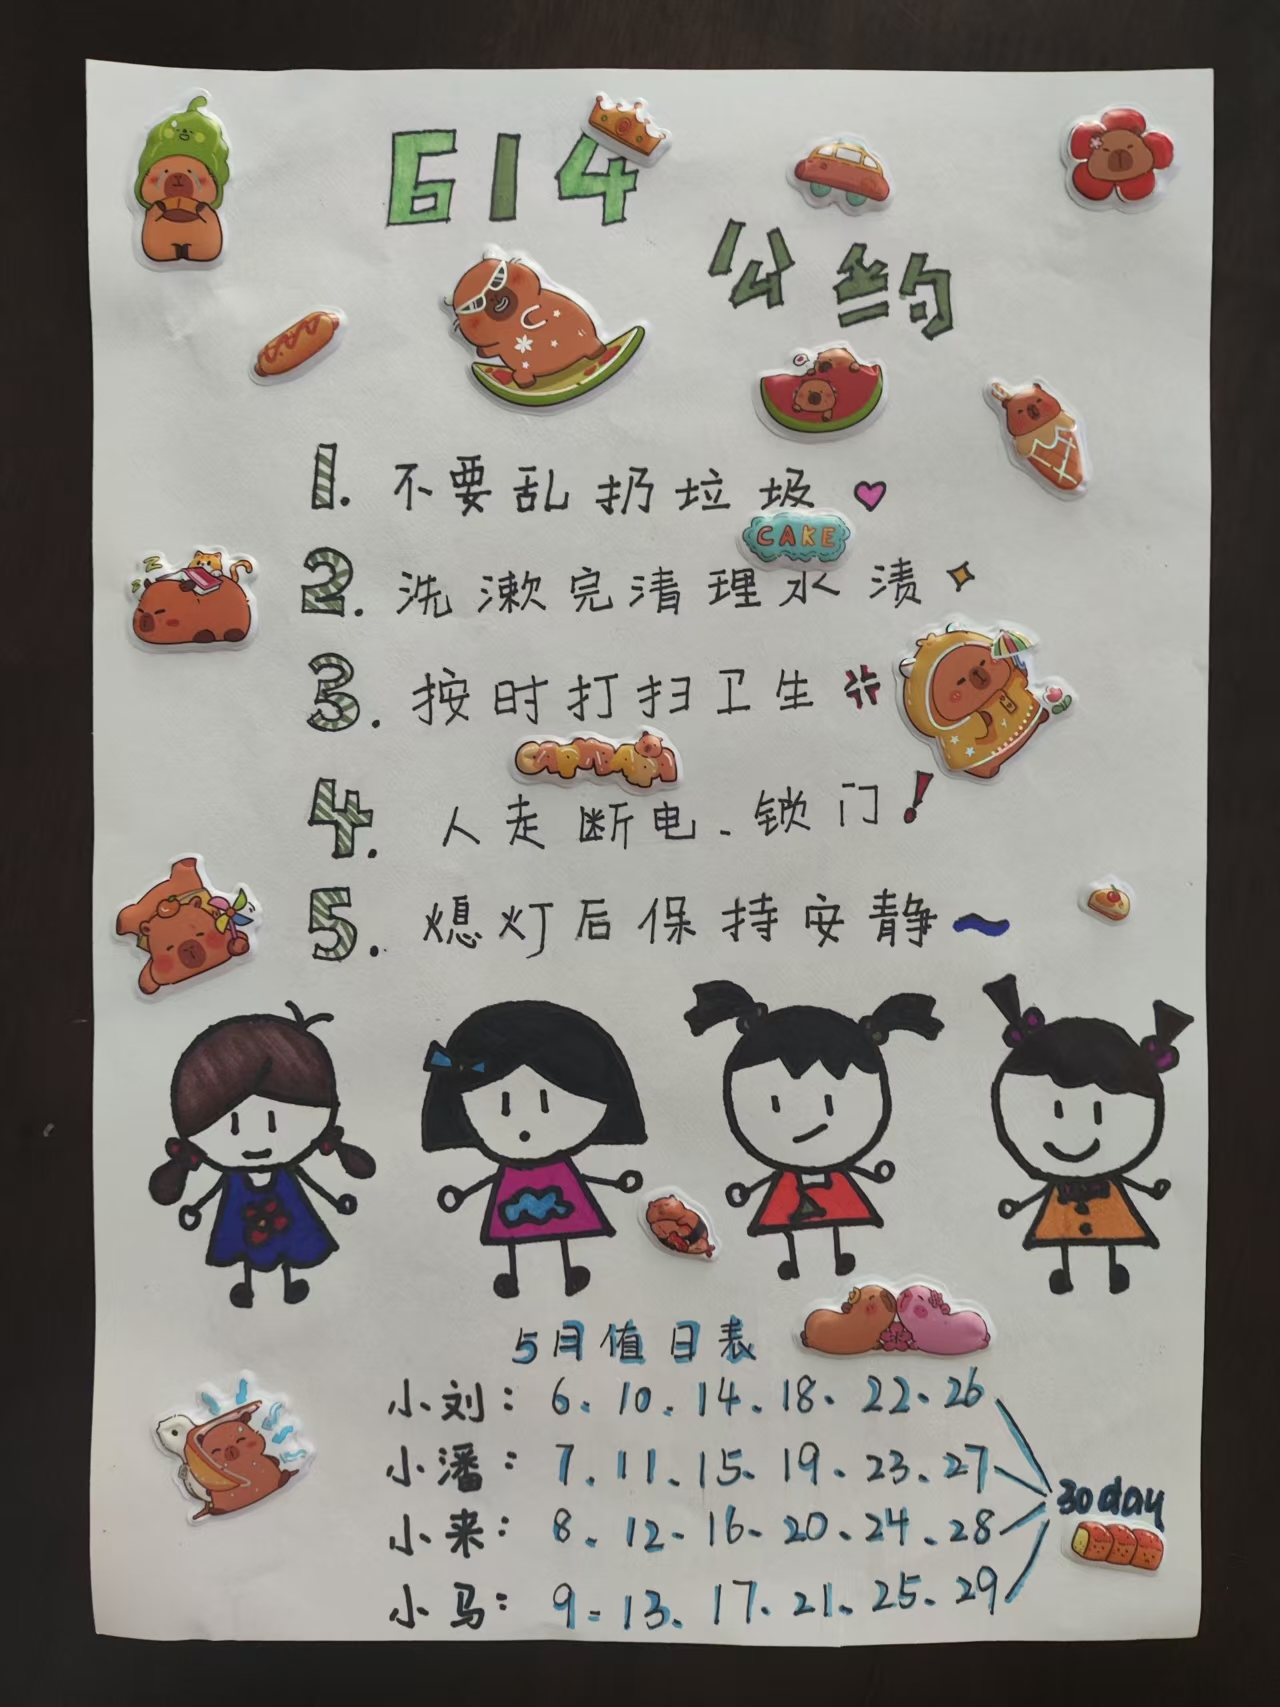 614
公约
1. 不要乱扔垃圾
CAKE
2. 洗漱完清理水渍
3. 按时打扫卫生
CAPYBARA
4. 人走断电、锁门!
5. 熄灯后保持安静~
5月值日表
小刘: 6、10、14、18、22、26
小潘: 7、11、15、19、23、27
30day
小来: 8、12、16、20、24、28
小马: 9、13、17、21、25、29